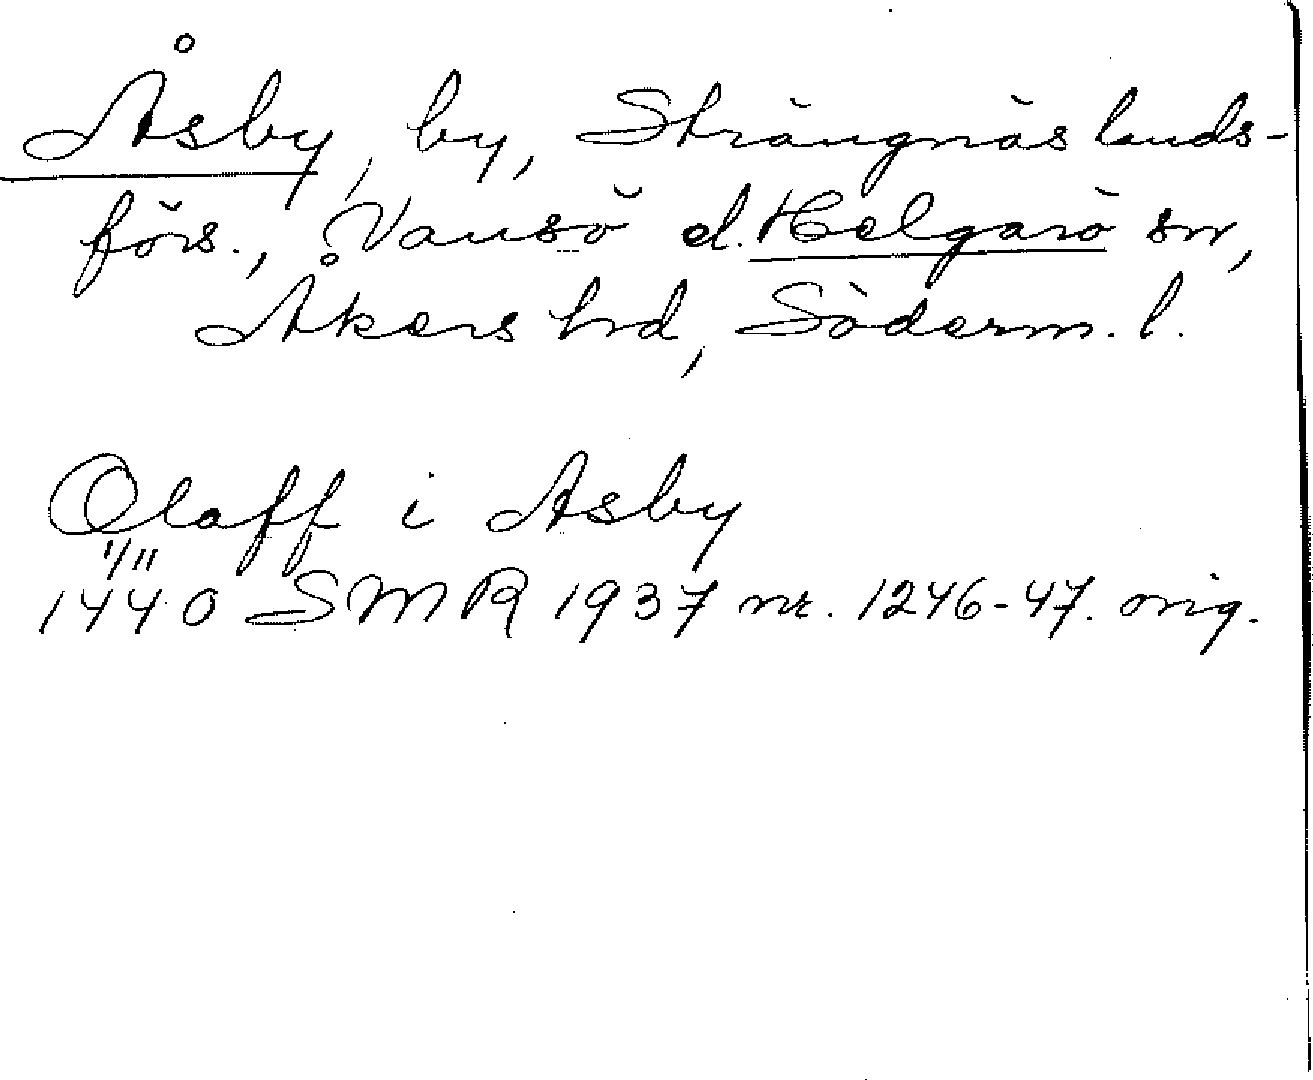 Åsby, by, Strängnäs lands-
förs., Vansö el. Helgarö sn,
Åkers hd, Söderm. l.
Olaff i Asby
1/11
1440 SMR 1937 nr. 1246-47. orig.